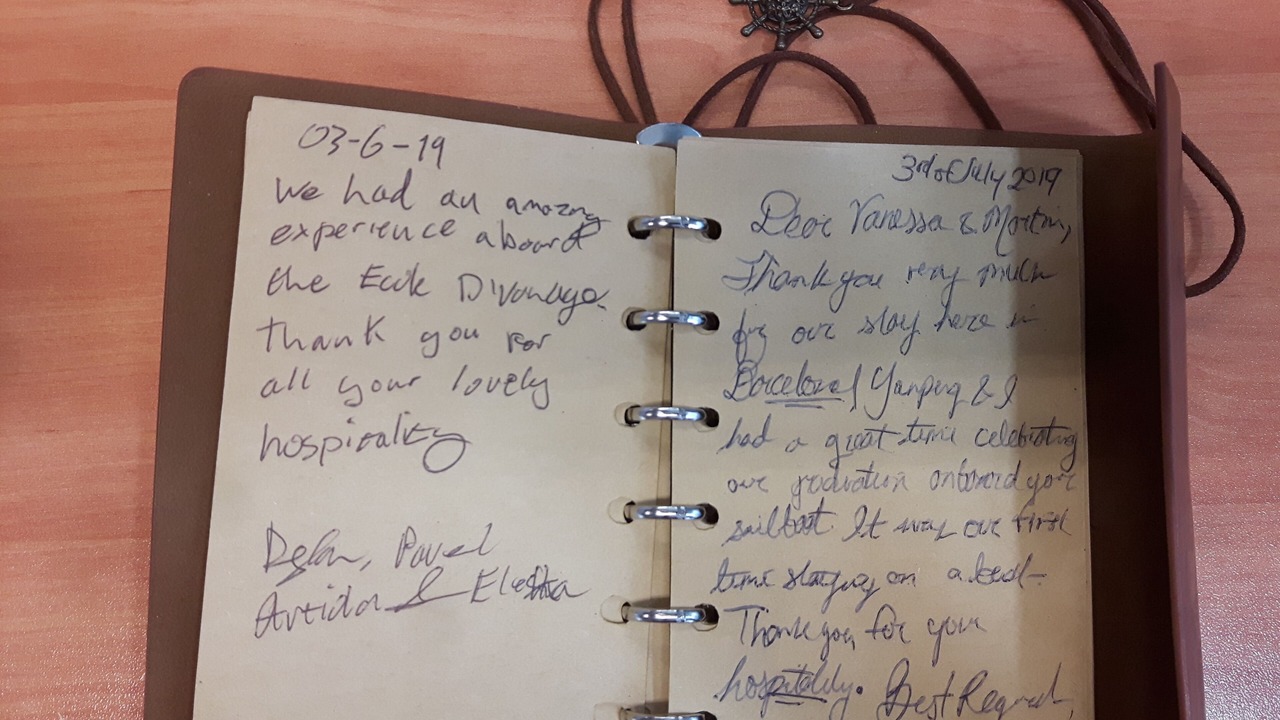 03-6-19
We had an amazing
experience aboard
the Ecole Divonage.
thank you for
all your lovely
hospitality
Pavel
& 
3rd of July 2019
Dear Vanessa & Martin,
Thank you very much
for our stay here in
Barcelona! Yanpeng & I
had a great time celebrating
our graduation onboard your
sailboat. It was our first
time staying on a boat.
Thank you for your
hospitality. Best Regards,